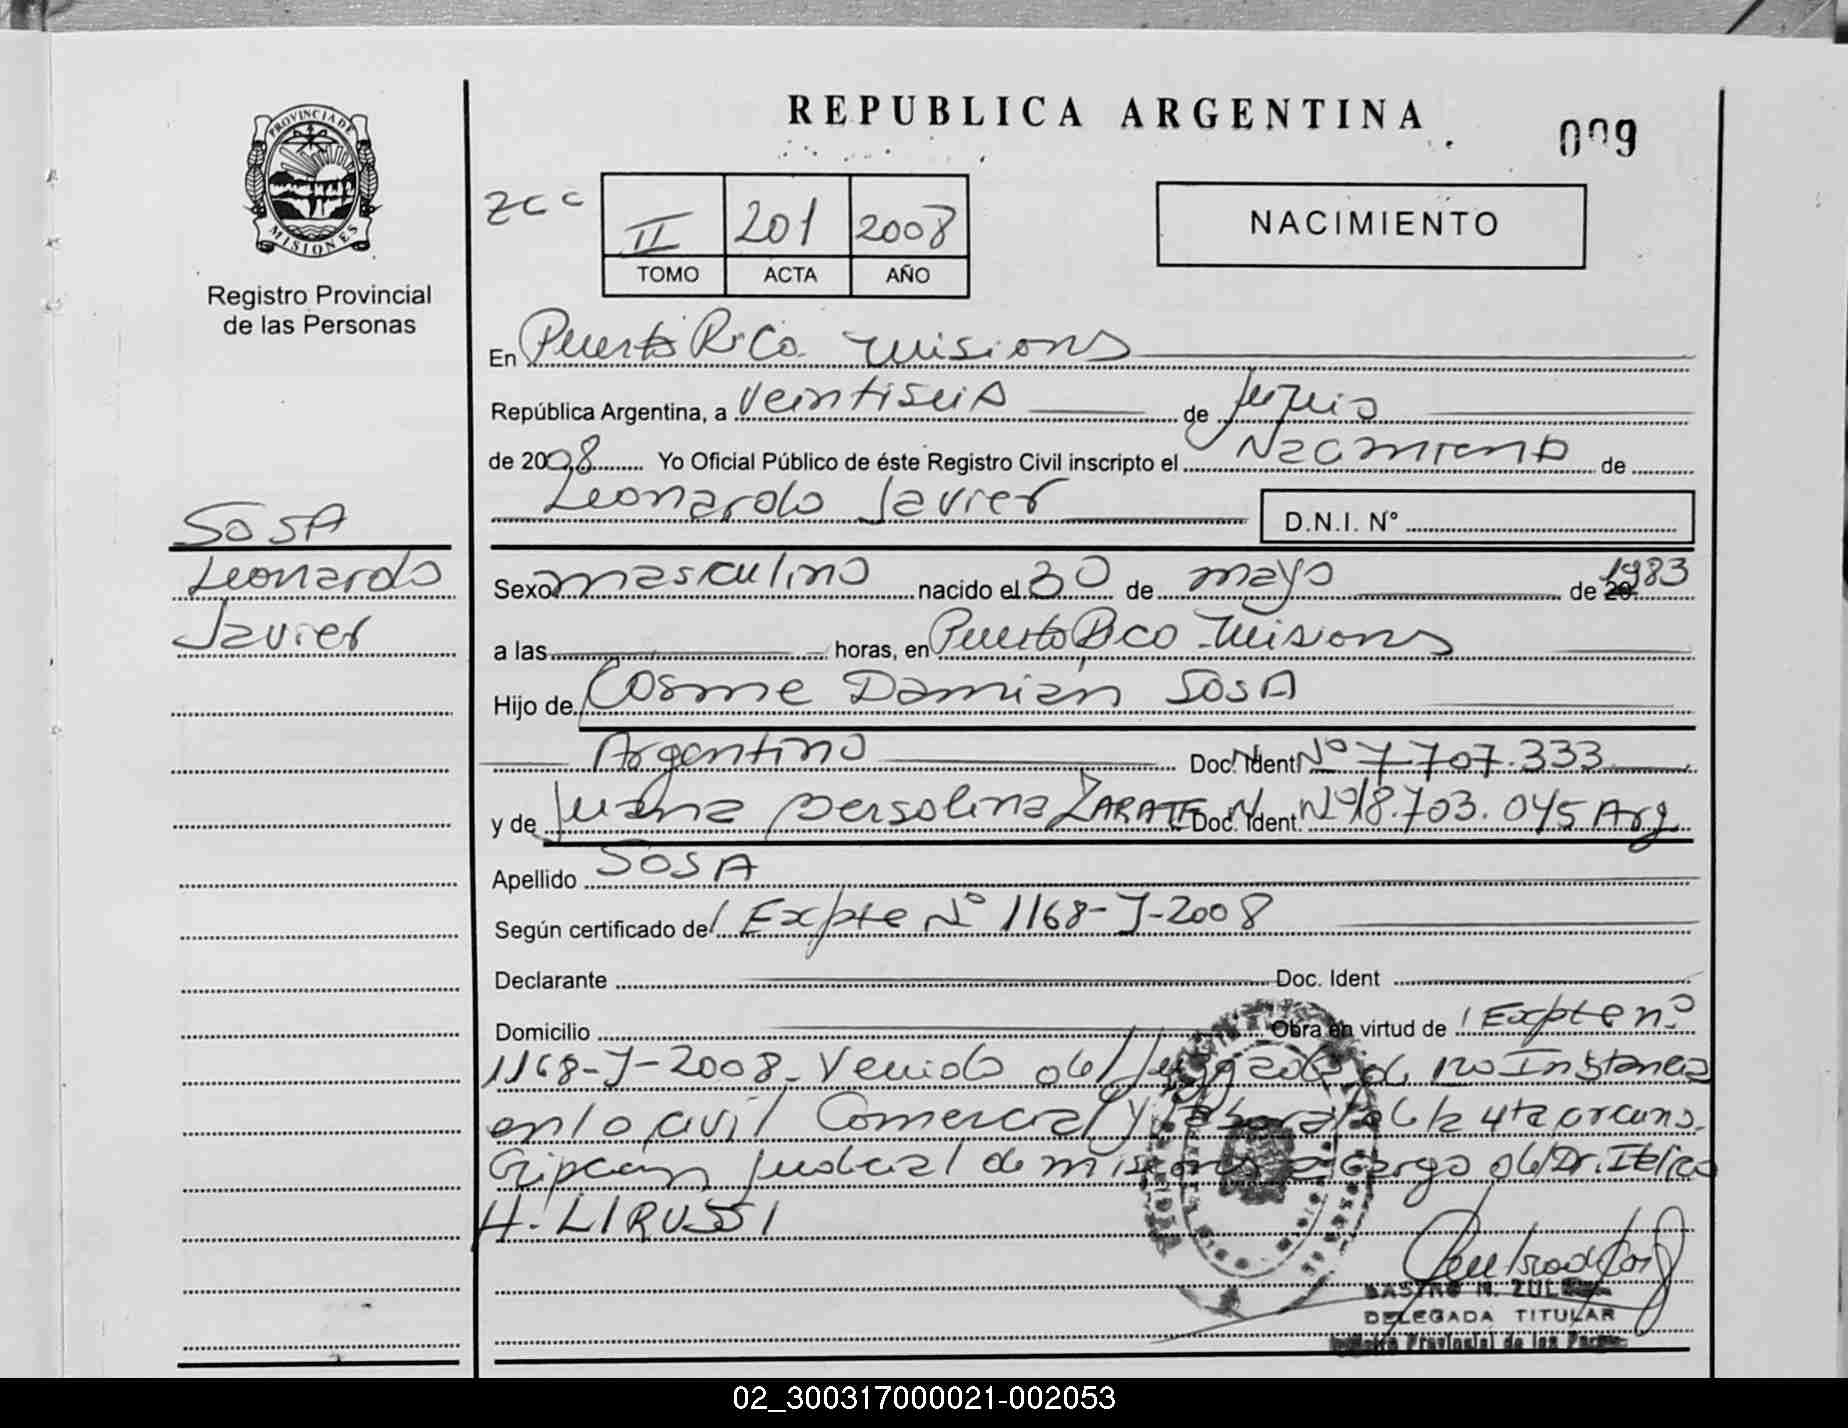 REPUBLICA ARGENTINA
009
PROVINCIA DE
MISIONES
Registro Provincial
de las Personas
zcc
II 201 2008
TOMO ACTA AÑO
NACIMIENTO
En Puerto Rico Misiones
República Argentina, a veintiseis de junio
de 2008 Yo Oficial Público de éste Registro Civil inscripto el Nacimiento de
Leonardo Javier D.N.I. N°
SOSA
Leonardo
Javier
Sexo masculino nacido el 30 de mayo de 20 1983
a las horas, en Puerto Rico Misiones
Hijo de Cosme Damián SOSA
Argentino Doc. Ident N° 7.707.333
y de Juana persolina ZARATE Doc. Ident. N° 18.703.045 Arg
Apellido SOSA
Según certificado de Expte N° 1168-J-2008
Declarante Doc. Ident
Domicilio Obra en virtud de Expte n°
1168-J-2008. Venido del Juzgado de 1ro Instancia
en lo civil Comercial y laboral de la 4ta circuns.
cripción judicial de misiones a cargo del Dr.
H. LIRUSSI
DELEGADA TITULAR
Registro Provincial de las Personas
02_300317000021-002053